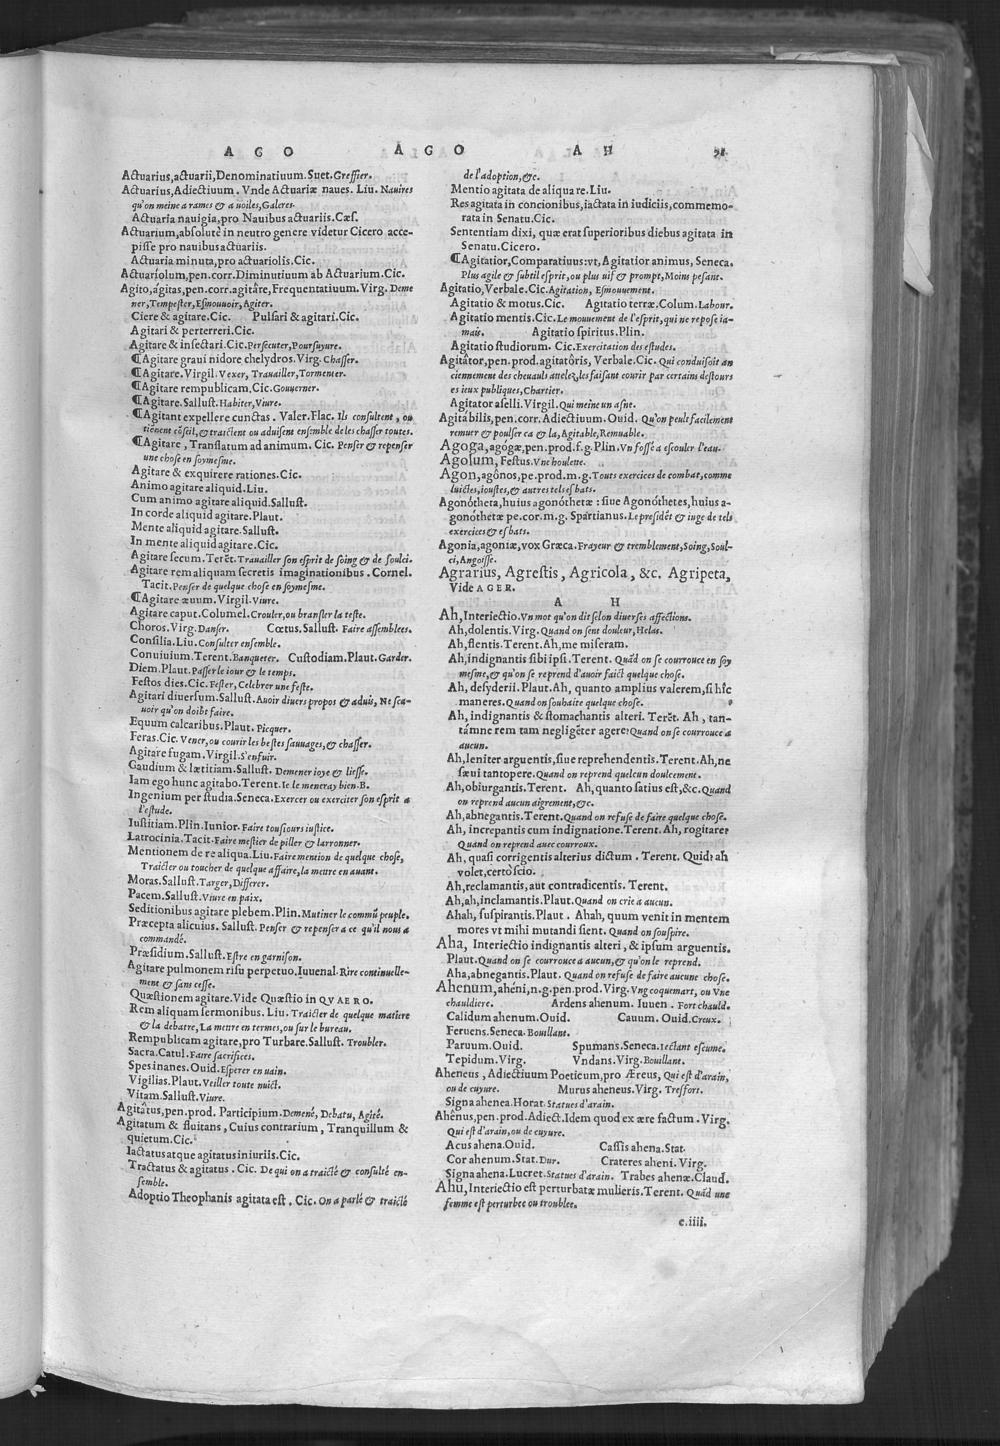 A G O
A G O
A H
Actuarius,actuarii,Denominatiuum.Suet.Greffier.
Actuarius,Adiectiuum. Vnde Actuariæ naues. Liu. Nauires
qu'on meine a rames & a uoiles,Galeres.
Actuaria nauigia,pro Nauibus actuariis.Cæs.
Actuarium,absolutè in neutro genere videtur Cicero acce-
pisse pro nauibus actuariis.
Actuaria minuta,pro actuariolis.Cic.
Actuariolum,pen.corr.Diminutiuum ab Actuarium.Cic.
Agito,ágitas,pen.corr.agitâre,Frequentatiuum.Virg. Deme
ner,Tempester,Esmouuoir,Agiter.
Ciere & agitare.Cic. Pulsari & agitari.Cic.
Agitari & perterreri.Cic.
Agitare & insectari.Cic.Persecuter,Poursuyure.
¶Agitare graui nidore chelydros.Virg.Chasser.
¶Agitare.Virgil.Vexer, Trauailler,Tormenter.
¶Agitare rempublicam.Cic.Gouuerner.
¶Agitare.Sallust.Habiter,Viure.
¶Agitant expellere cunctas. Valer.Flac. Ils consultent, ou
tiēnent cōseil,& traictent ou aduisent ensemble de les chasser toutes.
¶Agitare, Translatum ad animum. Cic. Penser & repenser
une chose en soymesme.
Agitare & exquirere rationes.Cic.
Animo agitare aliquid.Liu.
Cum animo agitare aliquid.Sallust.
In corde aliquid agitare.Plaut.
Mente aliquid agitare.Sallust.
In mente aliquid agitare.Cic.
Agitare secum.Terēt.Trauailler son esprit de soing & de soulci.
Agitare rem aliquam secretis imaginationibus. Cornel.
Tacit.Penser de quelque chose en soymesme.
¶Agitare æuum.Virgil.Viure.
Agitare caput.Columel.Crouler,ou bransler la teste.
Choros.Virg.Danser. Cœtus.Sallust. Faire assemblees.
Consilia.Liu.Consulter ensemble.
Conuiuium.Terent.Banqueter. Custodiam.Plaut.Garder.
Diem.Plaut.Passer le iour & le temps.
Festos dies.Cic.Fester,Celebrer une feste.
Agitari diuersum.Sallust.Auoir diuers propos & aduis, Ne sca-
uoir qu'on doibt faire.
Equum calcaribus.Plaut.Picquer.
Feras.Cic.Vener,ou courir les bestes sauuages,& chasser.
Agitare fugam.Virgil.S'enfuir.
Gaudium & lætitiam.Sallust. Demener ioye & liesse.
Iam ego hunc agitabo.Terent.Ie le meneray bien.B.
Ingenium per studia.Seneca.Exercer ou exerciter son esprit a
l'estude.
Iustitiam.Plin.Iunior.Faire tousiours iustice.
Latrocinia.Tacit.Faire mestier de piller & larronner.
Mentionem de re aliqua.Liu.Faire mention de quelque chose,
Traicter ou toucher de quelque affaire,la mettre en auant.
Moras.Sallust.Targer,Differer.
Pacem.Sallust.Viure en paix.
Seditionibus agitare plebem.Plin.Mutiner le commū peuple.
Præcepta alicuius. Sallust. Penser & repenser a ce qu'il nous a
commandé.
Præsidium.Sallust.Estre en garnison.
Agitare pulmonem risu perpetuo.Iuuenal.Rire continuelle-
ment & sans cesse.
Quæstionem agitare.Vide Quæstio in QVAERO.
Rem aliquam sermonibus. Liu. Traicter de quelque matiere
& la debatre,La mettre en termes,ou sur le bureau.
Rempublicam agitare,pro Turbare.Sallust. Troubler.
Sacra.Catul.Faire sacrifices.
Spes inanes.Ouid.Esperer en uain.
Vigilias.Plaut.Veiller toute nuict.
Vitam.Sallust.Viure.
Agitâtus,pen.prod. Participium.Demené, Debatu, Agité.
Agitatum & fluitans, Cuius contrarium, Tranquillum &
quietum.Cic.
Iactatus atque agitatus iniuriis.Cic.
Tractatus & agitatus. Cic. De qui on a traicté & consulté en-
semble.
Adoptio Theophanis agitata est. Cic. On a parlé & traicté
de l'adoption,&c.
Mentio agitata de aliqua re.Liu.
Res agitata in concionibus,iactata in iudiciis,commemo-
rata in Senatu.Cic.
Sententiam dixi, quæ erat superioribus diebus agitata in
Senatu.Cicero.
¶Agitatior,Comparatiuus:vt, Agitatior animus, Seneca.
Plus agile & subtil esprit,ou plus uif & prompt,Moins pesant.
Agitatio,Verbale.Cic.Agitation, Esmouuement.
Agitatio & motus.Cic. Agitatio terræ.Colum.Labour.
Agitatio mentis.Cic.Le mouuement de l'esprit,qui ne repose ia-
mais. Agitatio spiritus.Plin.
Agitatio studiorum. Cic.Exercitation des estudes.
Agitâtor,pen.prod.agitatôris, Verbale.Cic. Qui conduisoit an
ciennement des cheuauls attelez,les faisant courir par certains destours
es ieux publiques,Chartier.
Agitator aselli.Virgil.Qui meine un asne.
Agitábilis,pen.corr.Adiectiuum.Ouid. Qu'on peult facilement
remuer & poulser ca & la,Agitable,Remuable.
Agoga,agógæ,pen.prod.f.g.Plin.Vn fossé a escouler l'eau.
Agolum, Festus.Vne houlette.
Agon,agônos,pe.prod.m.g.Touts exercices de combat,comme
luictes,ioustes,& autres tels esbats.
Agonótheta,huius agonóthetæ: siue Agonóthetes,huius a-
gonóthetæ pe.cor.m.g. Spartianus.Le presidēt & iuge de tels
exercices & esbats.
Agonia,agoniæ,vox Græca.Frayeur & tremblement,Soing,Soul-
ci,Angoisse.
Agrarius, Agrestis, Agricola, &c. Agripeta,
Vide AGER.
A H
Ah,Interiectio.Vn mot qu'on dit selon diuerses affections.
Ah,dolentis.Virg.Quand on sent douleur,Helas.
Ah,flentis.Terent.Ah,me miseram.
Ah,indignantis sibi ipsi.Terent. Quād on se courrouce en soy
mesme,& qu'on se reprend d'auoir faict quelque chose.
Ah, desyderii.Plaut.Ah, quanto amplius valerem,si hîc
maneres.Quand on souhaite quelque chose.
Ah, indignantis & stomachantis alteri. Terēt. Ah, tan-
támne rem tam negligēter agere?Quand on se courrouce a
aucun.
Ah,leniter arguentis,siue reprehendentis.Terent.Ah,ne
sæui tantopere.Quand on reprend quelcun doulcement.
Ah,obiurgantis.Terent. Ah,quanto satius est,&c.Quand
on reprend aucun aigrement,&c.
Ah,abnegantis.Terent.Quand on refuse de faire quelque chose.
Ah, increpantis cum indignatione.Terent.Ah, rogitare?
Quand on reprend auec courroux.
Ah, quasi corrigentis alterius dictum. Terent. Quid? ah
volet,certò scio.
Ah,reclamantis,aut contradicentis. Terent.
Ah,ah,inclamantis.Plaut.Quand on crie a aucun.
Ahah, suspirantis.Plaut. Ahah, quum venit in mentem
mores vt mihi mutandi sient. Quand on souspire.
Aha, Interiectio indignantis alteri, & ipsum arguentis.
Plaut.Quand on se courrouce a aucun,& qu'on le reprend.
Aha,abnegantis.Plaut. Quand on refuse de faire aucune chose.
Ahenum,ahéni,n.g.pen.prod.Virg.Vng coquemart, ou Vne
chauldiere. Ardens ahenum. Iuuen. Fort chauld.
Calidum ahenum.Ouid. Cauum. Ouid.Creux.
Feruens.Seneca.Bouillant.
Paruum.Ouid. Spumans.Seneca.Iectant escume.
Tepidum.Virg. Vndans.Virg.Bouillant.
Aheneus, Adiectiuum Poeticum,pro Æreus, Qui est d'arain,
ou de cuyure. Murus aheneus.Virg. Tresfort.
Signa ahenea.Horat.Statues d'arain.
Ahênus,pen.prod.Adiect.Idem quod ex ære factum. Virg.
Qui est d'arain,ou de cuyure.
Acus ahena.Ouid. Cassis ahena.Stat.
Cor ahenum.Stat.Dur. Crateres aheni. Virg.
Signa ahena.Lucret.Statues d'arain. Trabes ahenæ.Claud.
Ahu,Interiectio est perturbatæ mulieris.Terent. Quād une
femme est perturbee ou troublee.
e.iiii.